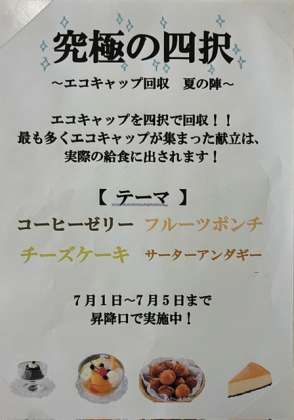 究極の四択
～エコキャップ回収　夏の陣～
エコキャップを四択で回収！！
最も多くエコキャップが集まった献立は、
実際の給食に出されます！
【 テーマ 】
コーヒーゼリー　フルーツポンチ
チーズケーキ　サーターアンダギー
７月１日～７月５日まで
昇降口で実施中！